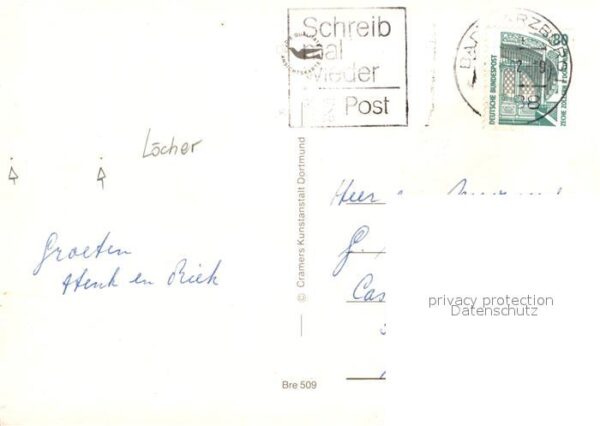 Schreib
mal
wieder
Post
80
DEUTSCHE BUNDESPOST
Löcher
Groeten
Henk en Riek
© Cramers Kunstanstalt Dortmund
Bre 509
Heer
G.
Cas
privacy protection
Datenschutz